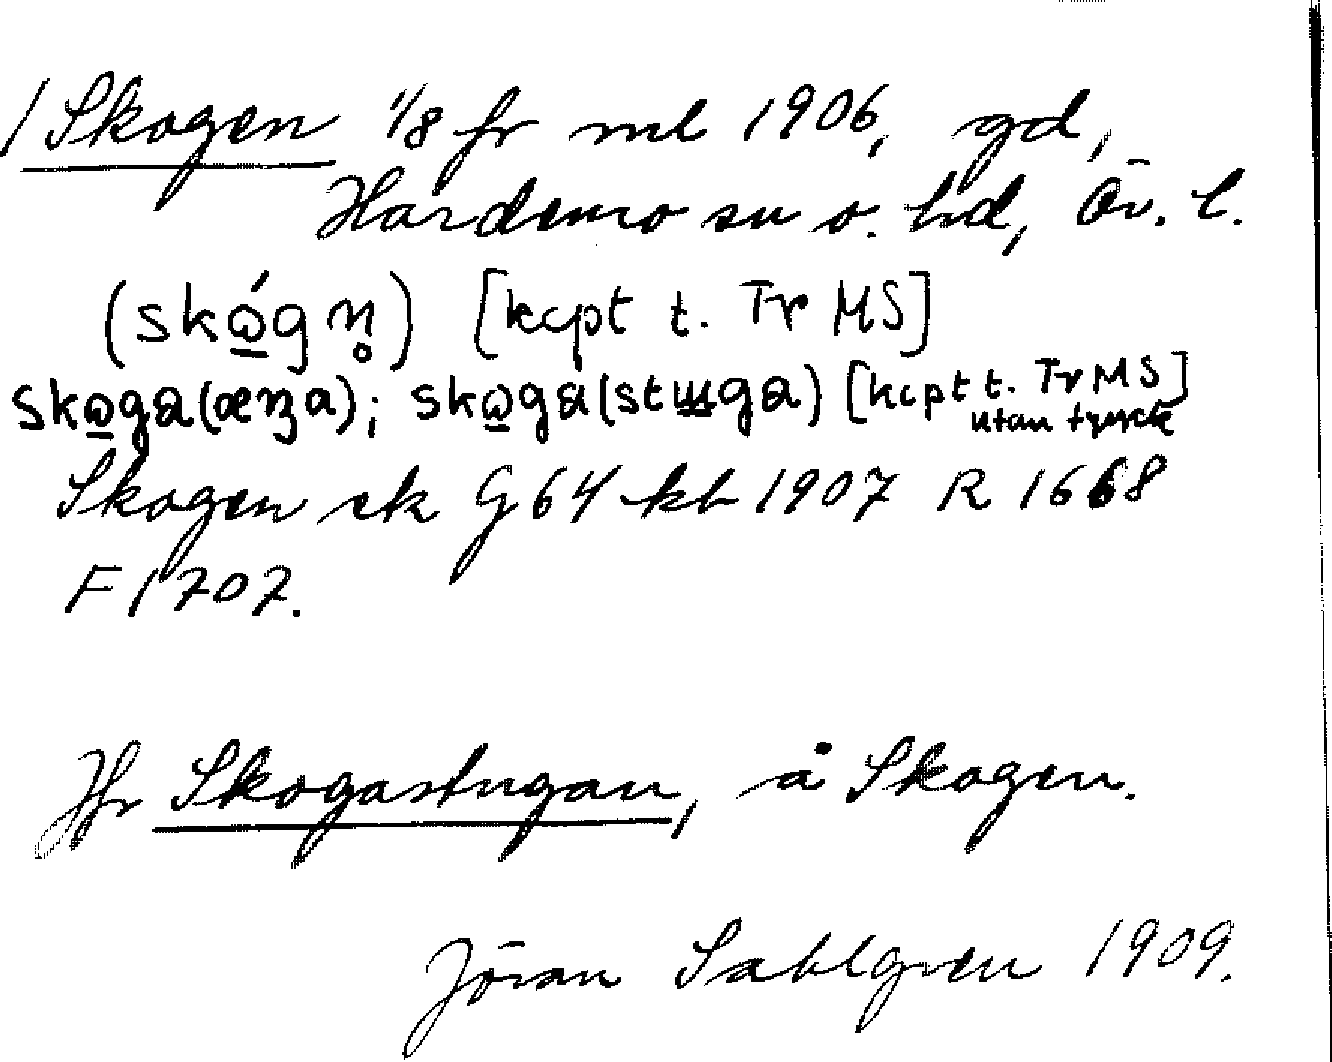 / Skogen 1/8 fr ml 1906, gd,
Hardemo sn o. hd, Öv. l.
(skǫ́gn̥) [kcpt t. Tr MS]
skǫga(æŋa); skǫga(stɯga) [kcpt t. Tr MS]
utan tryck
Skogen ek G 64 kb 1907 R 1668
F 1707.
Jfr Skogastugan, å Skogen.
Jöran Sahlgren 1909.